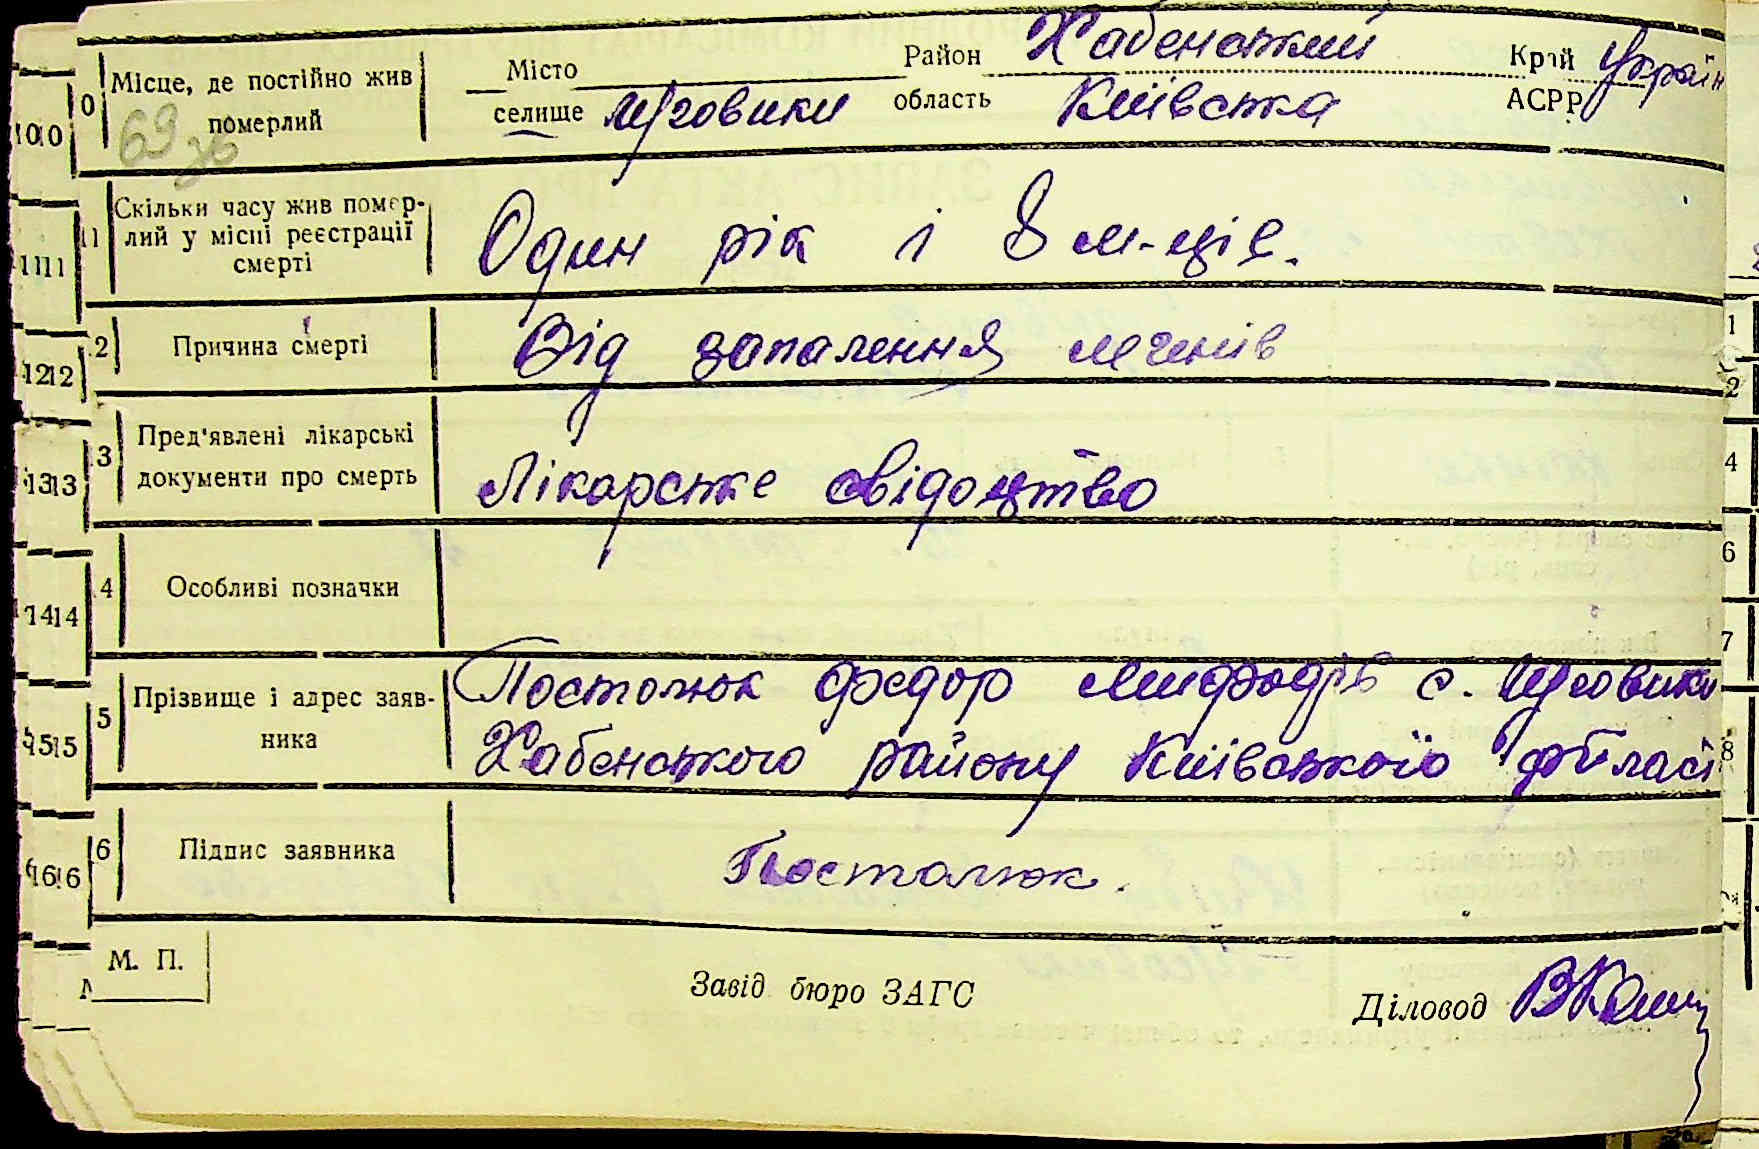 10 Місце, де постійно жив померлий
69 зв
Місто Район Хабенський Край Україн
селище Луговики область Київська АСРР
11 Скільки часу жив помер-
лий у місці реєстрації
смерті
Один рік і 8 м-ців.
12 Причина смерті Від запалення легенів
13 Пред'явлені лікарські
документи про смерть
Лікарське свідоцтво
14 Особливі позначки
15 Прізвище і адрес заяв-
ника
Постолюк Федор с. Луговики
Хабенського району Київської області
16 Підпис заявника Постолюк.
М. П.
Завід бюро ЗАГС Діловод